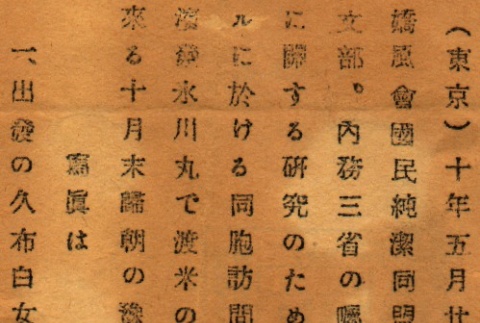 (東京)十年五月廿
矯風會國民純潔同盟
文部、內務三省の囑
に關する研究のため
ルに於ける同胞訪問
濱發氷川丸で渡米の
來る十月末歸朝の豫
寫眞は
出發の久布白女